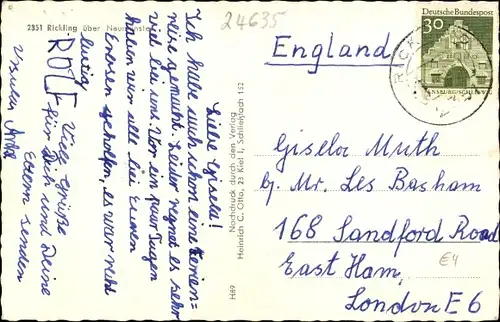 2351 Rickling über Neumünster
24635
Liebe Gisela!
Ich habe auch schon eine Ferien=
reise gemacht. Leider regnet es sehr
viel bei uns. Vor ein paar Tagen
haben wir alle bei
geholfen, es war recht
lustig
Viele Grüße
für Dich und Deine
Eltern senden
ROLF
Nachdruck durch den Verlag
Heinrich C. Otto, 23 Kiel 1, Schließfach 152
H89
Deutsche Bundespost
30
FLENSBURG/SCHLESWIG
RICK
England
Gisela Muth
b/. Mr. Les Basham
168 Sandford Road
East Ham,
London E 6
£4